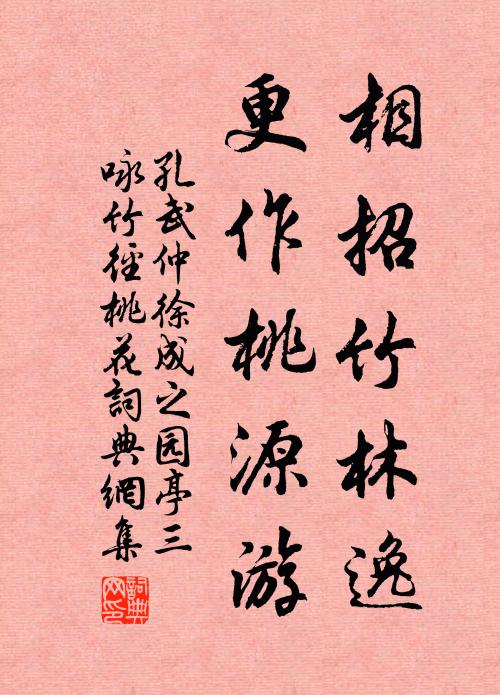 相招竹林逸
更作桃源游
孔武仲徐成之园亭三
咏竹徑桃花詞典網集
詞典
网印